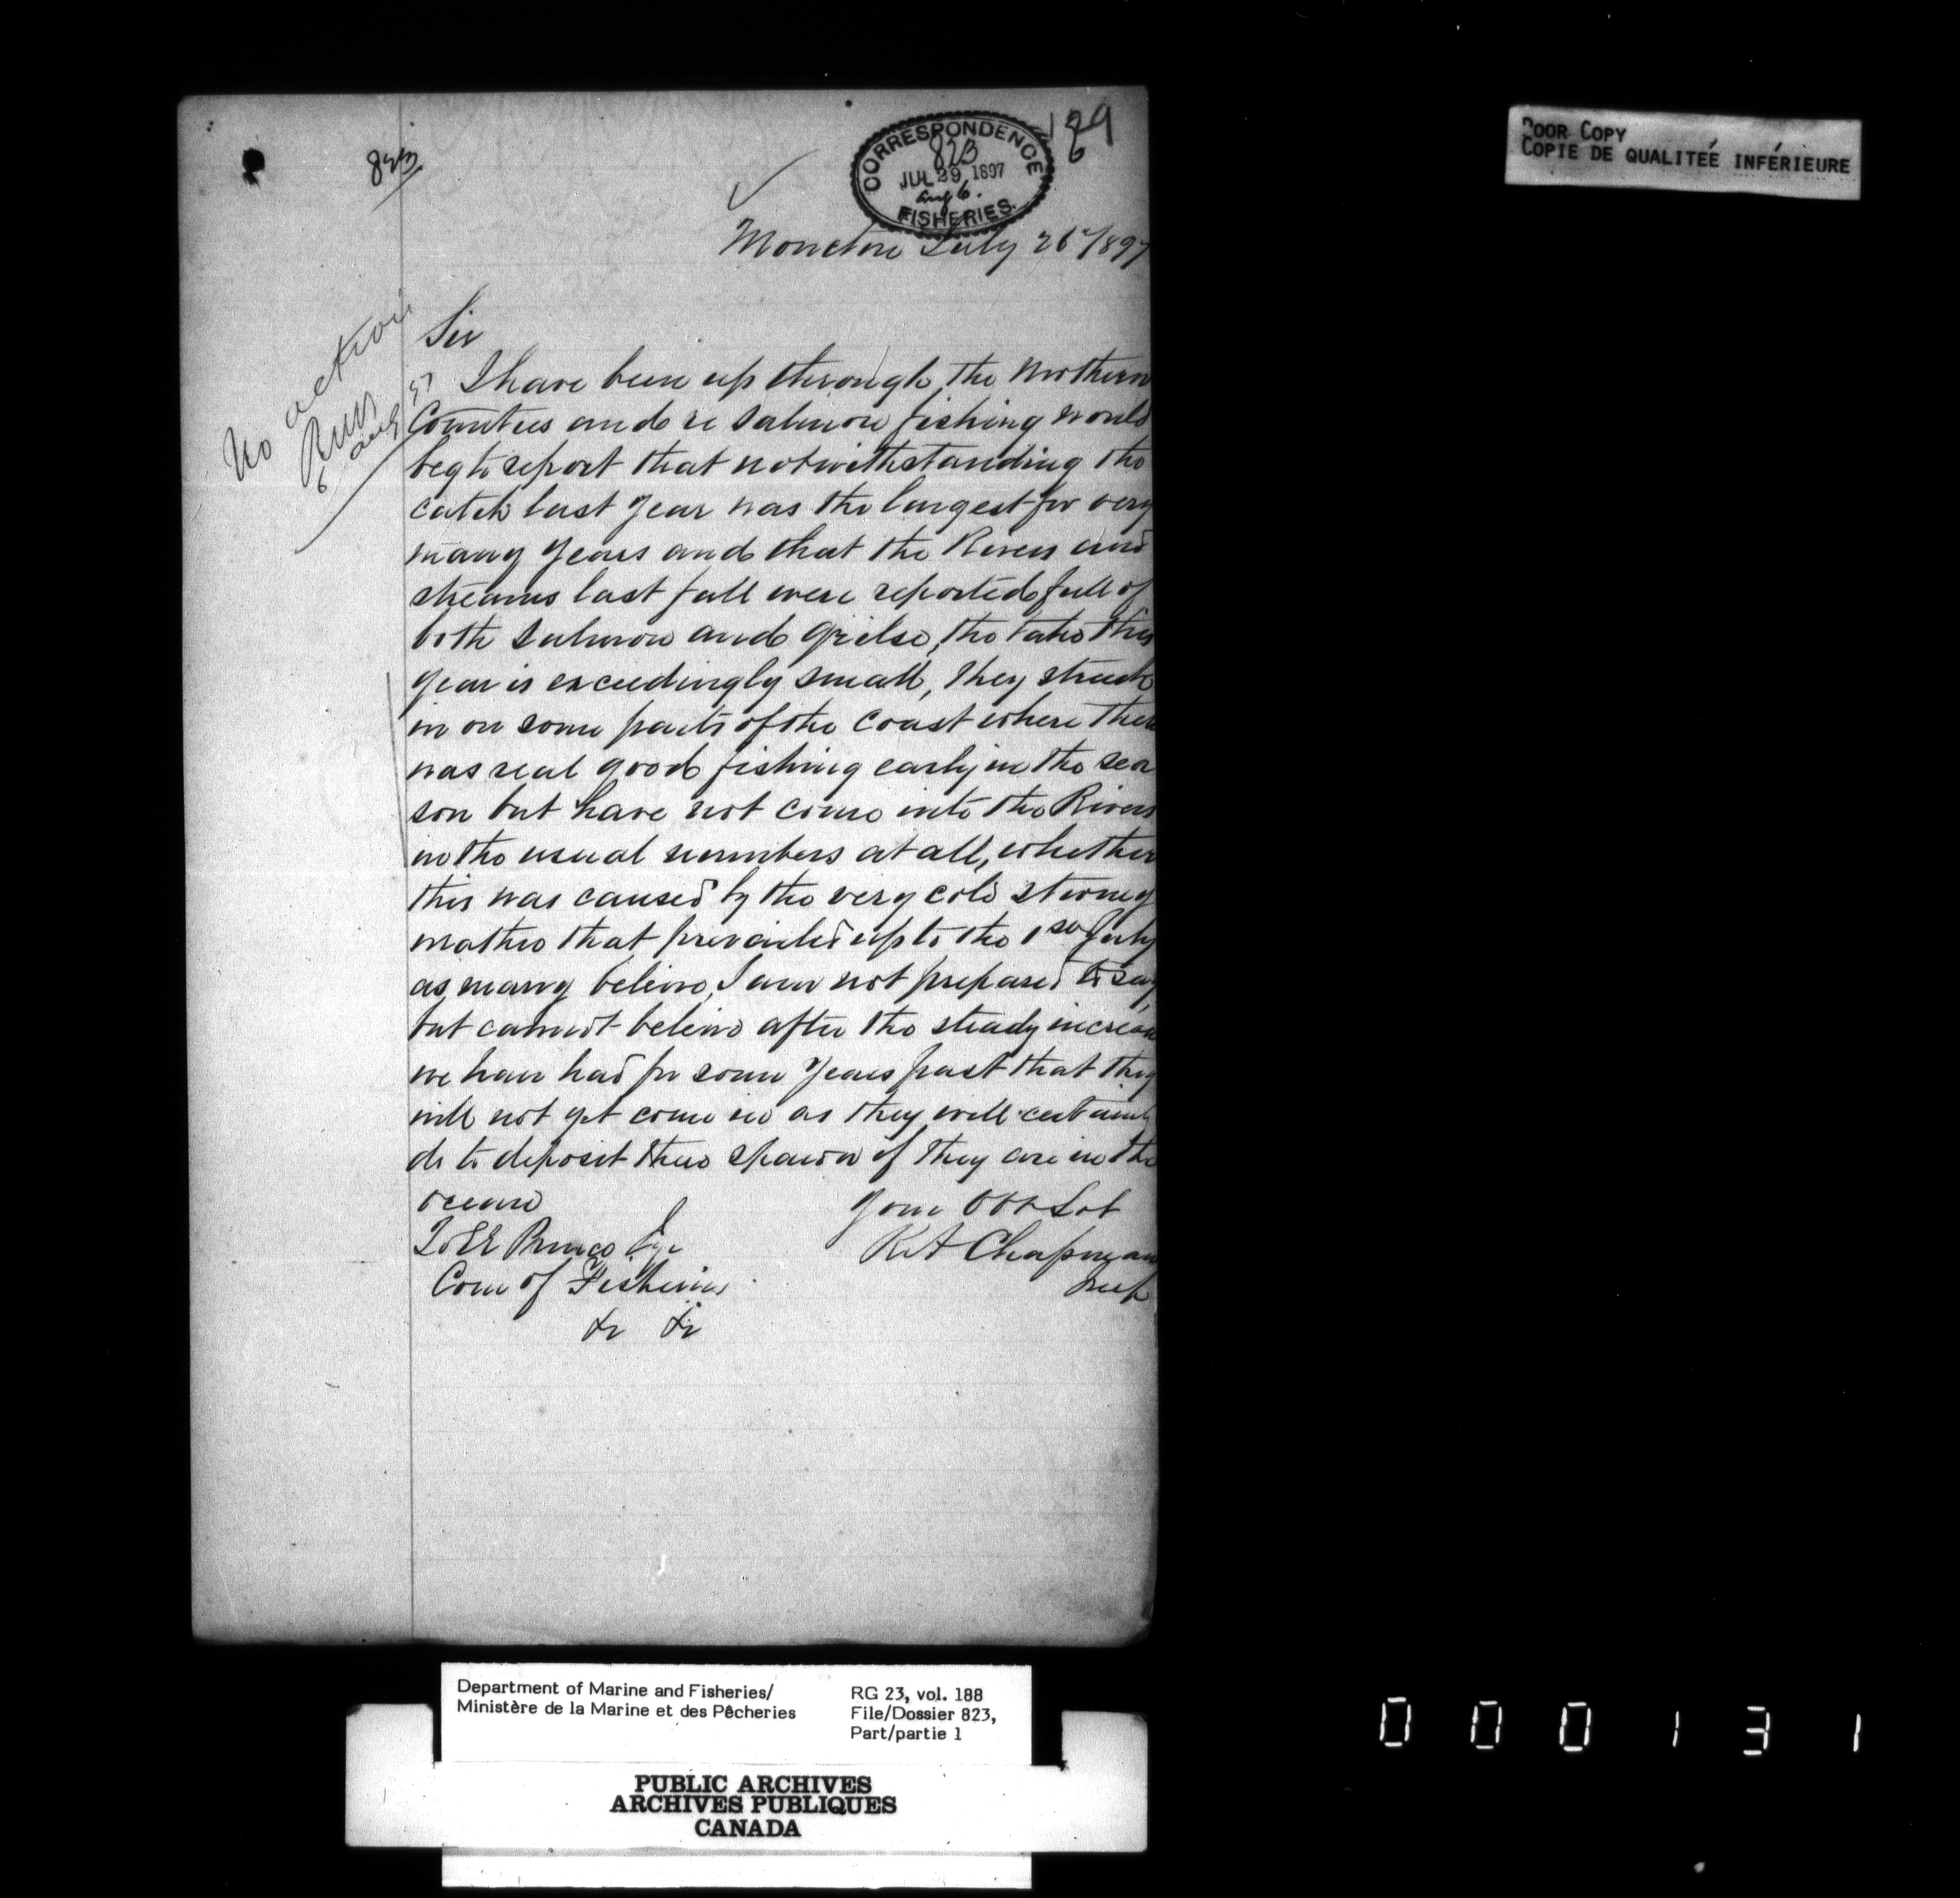 POOR COPY
COPIE DE QUALITEÉ INFÉRIEURE
189
6
823
CORRESPONDENCE
823
JUL 29 1897
Aug 6.
FISHERIES.
Moncton July 26th/897
No action
6 Aug 97
Sir
I have been up through the Northern
Counties and re Salmon fishing would
beg to report that notwithstanding the
catch last year was the largest for very
many years and that the Rivers and
streams last fall were reported full of
both Salmon and grilse, the take this
year is exceedingly small, they struck
in on some parts of the coast where there
was real good fishing early in the sea
son but have not come into the Rivers
in the usual numbers at all, whether
this was caused by the very cold stormy
weather that prevailed up to the 1st July
as many believe, I am not prepared to say,
but cannot believe after the steady increase
we have had for some years past that they
will not yet come in as they will certainly
do to deposit their spawn if they are in the
ocean
Your Obt Svt
R A Chapman
Insp
To E E Prince Esqr
Com of Fisheries
&c &c
Department of Marine and Fisheries/
Ministère de la Marine et des Pêcheries
RG 23, vol. 188
File/Dossier 823,
Part/partie 1
PUBLIC ARCHIVES
ARCHIVES PUBLIQUES
CANADA
000131